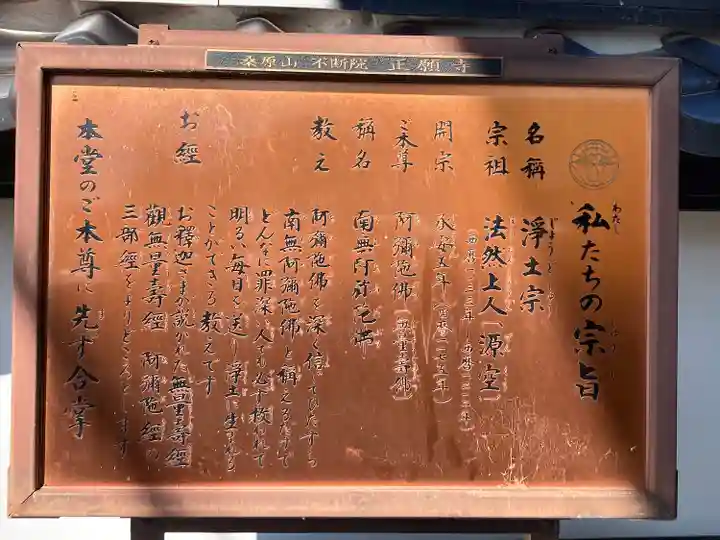 桑原山 不断院 正願寺
私たちの宗旨
名稱 淨土宗
宗祖 法然上人「源空」
(西暦一一三三年〜西暦一二一二年)
開宗 承安五年 (西暦一一七五年)
ご本尊 阿彌陀佛 (無量壽佛)
稱名 南無阿彌陀佛
教え 阿彌陀佛を深く信じてひたすら
南無阿彌陀佛と稱えるだけで
どんな罪深い人でも必ず救われて
明るい毎日を送り淨土に生まれる
ことができる教えです
お經 お釋迦さまが説かれた無量壽經
觀無量壽經 阿彌陀經の
三部經をよりどころとします
本堂のご本尊に先ず合掌